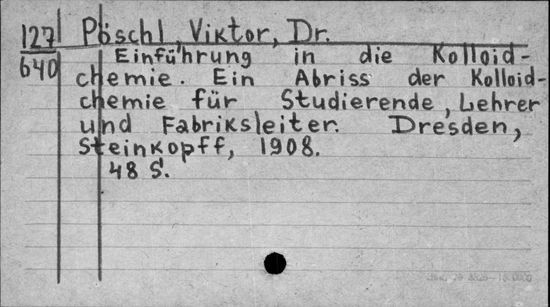 127 Pöschl, Viktor, Dr.
640 Einführung in die Kolloid-
chemie. Ein Abriss der Kolloid-
chemie für Studierende, Lehrer
und Fabriksleiter. Dresden,
Steinkopff, 1908.
48 S.